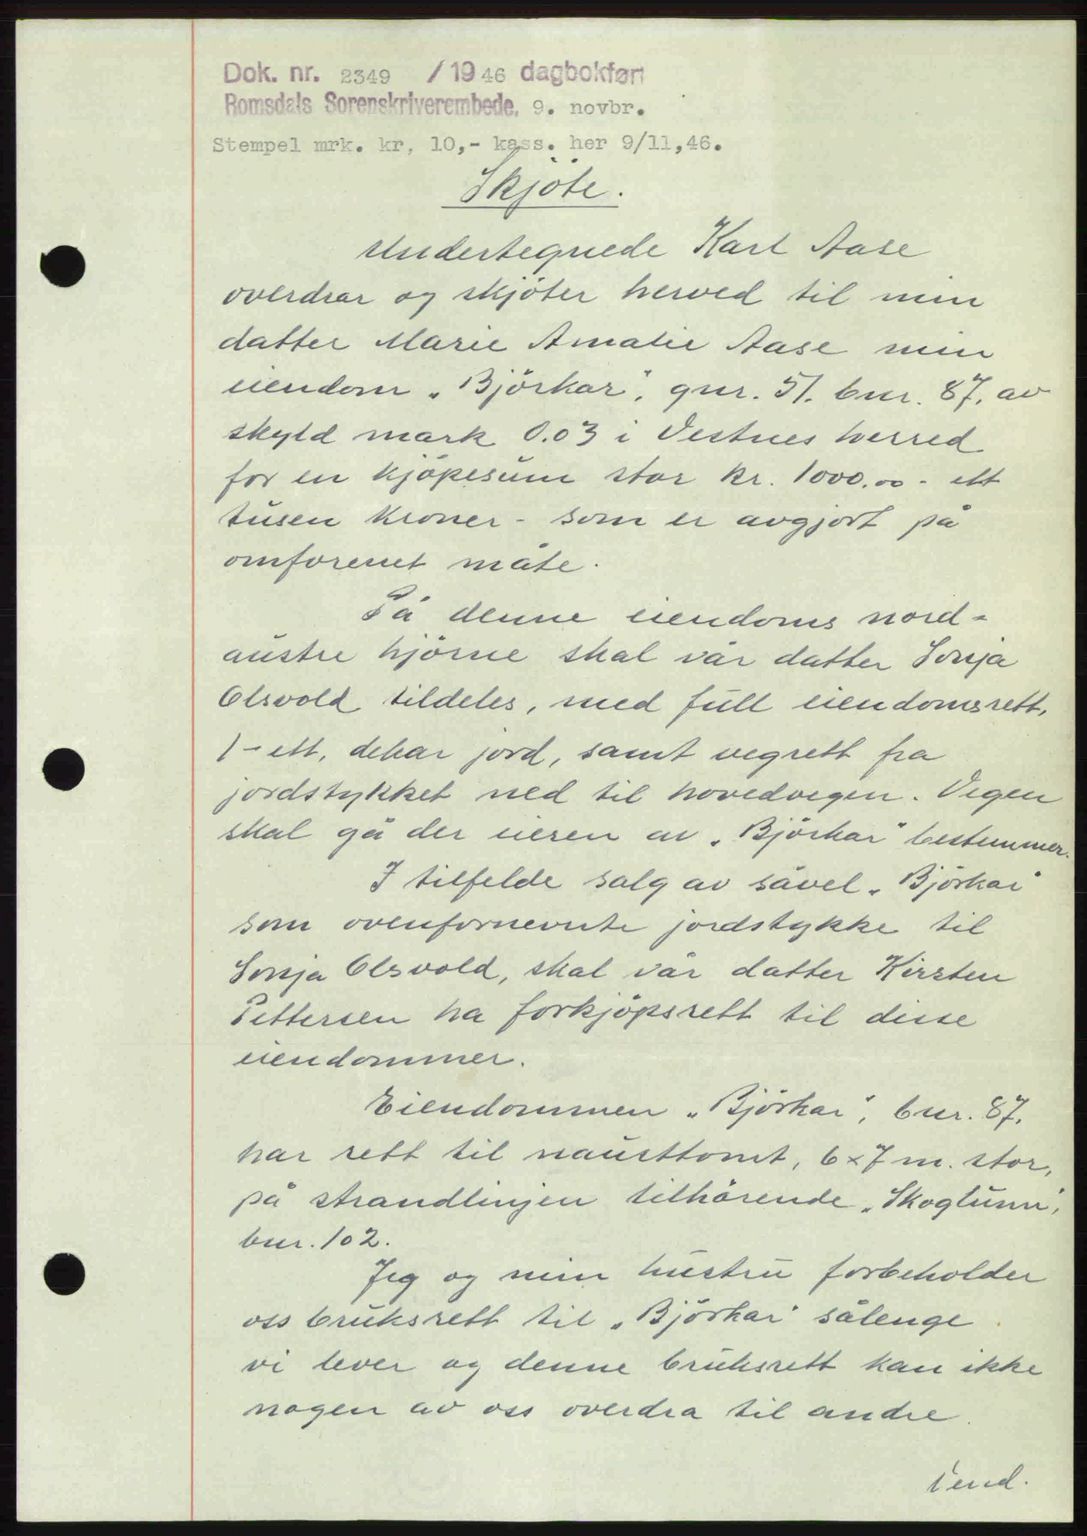 Dok. nr. 2349 / 1946 dagbokført
Romsdals Sorenskriverembede, 9. novbr.
Stempel mrk. kr, 10,- kass. her 9/11,46.
Skjöte.
Undertegnede Karl Aase
overdrar og skjöter herved til min
datter Marie Amalie Aase min
eiendom „Björkar", gnr. 51. bnr. 87. av
skyld mark 0.03 i Vestnes herred
for en kjöpesum stor kr. 1000.00 - ett
tusen kroner - som er avgjort på
omforenet måte.
På denne eiendoms nord-
austre hjörne skal vår datter Sonja
Olsvold tildeles, med full eiendomsrett,
1 - ett, dekar jord, samt vegrett fra
jordstykket ned til hovedvegen. Vegen
skal gå der eieren av „Björkar" bestemmer.
I tilfelde salg av såvel „Björkar"
som ovenfornevnte jordstykke til
Sonja Olsvold, skal vår datter Kirsten
Pettersen ha forkjöpsrett til disse
eiendommer.
Eiendommen „Björkar", bnr. 87.
har rett til nausttomt, 6 x 7 m. stor,
på strandlinjen tilhörende „Skoglunn",
bnr. 102.
Jeg og min hustru forbeholder
oss bruksrett til „Björkar" sålenge
vi lever og denne bruksrett kan ikke
nogen av oss overdra til andre.
Vend.